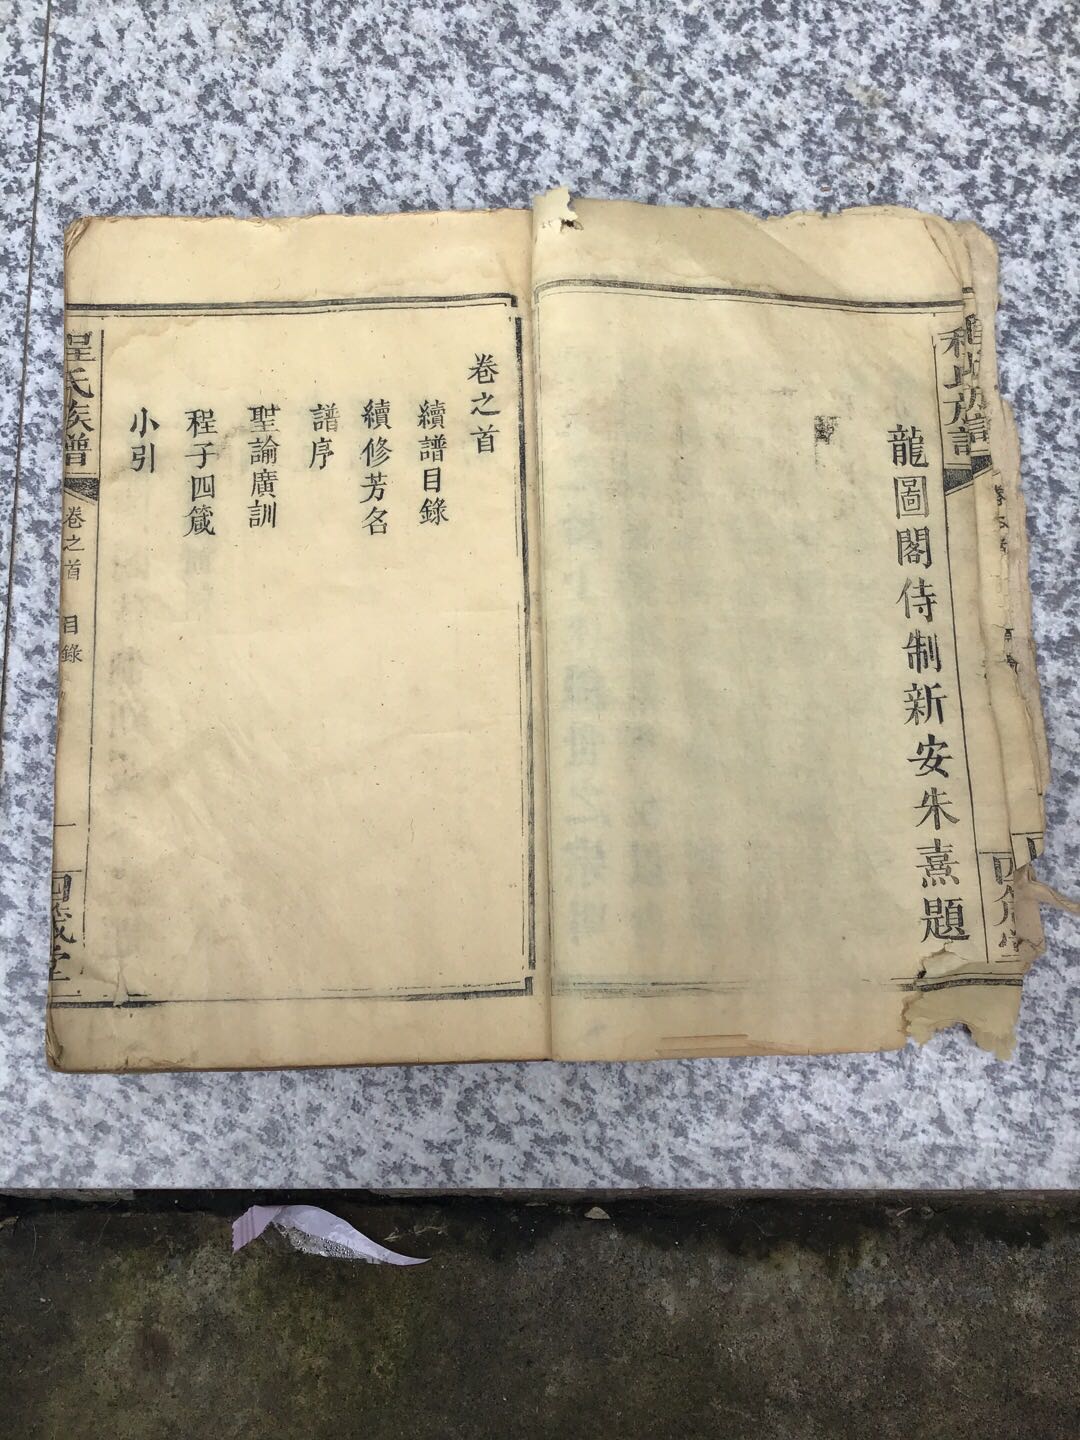 程氏族譜
四箴堂
龍圖閣侍制新安朱熹題
卷之首
續譜目錄
續修芳名
譜序
聖諭廣訓
程子四箴
小引
程氏族譜
卷之首
目錄
一
四箴堂